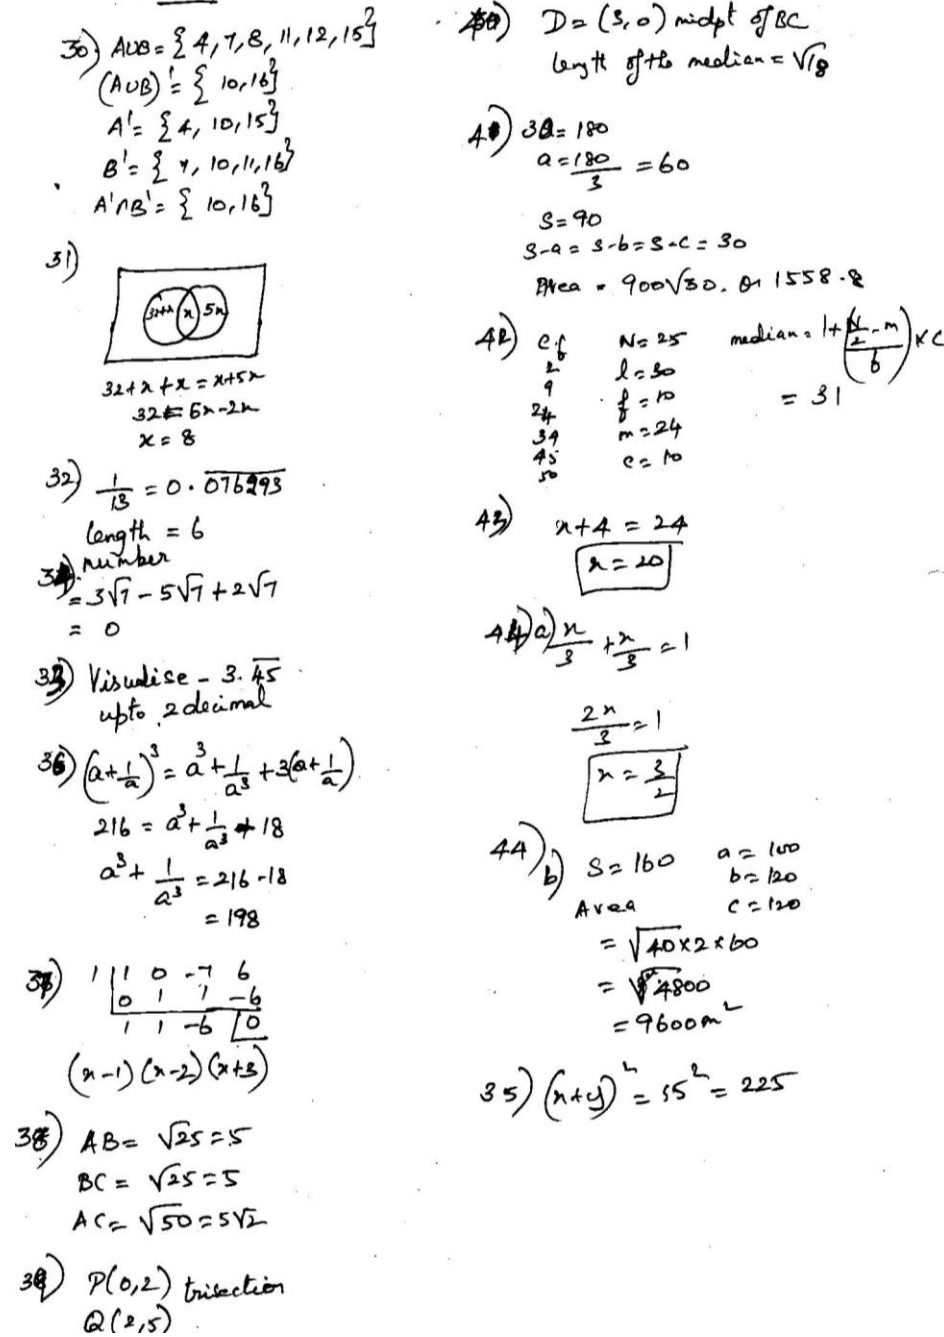 30) A∪B = { 4, 7, 8, 11, 12, 15 }
(A∪B)' = { 10, 16 }
A' = { 4, 10, 15 }
B' = { 7, 10, 11, 16 }
A'∩B' = { 10, 16 }
31)
32+x x 5x
32+x+x = x+5x
32 = 6x-2x
x = 8
32) 1/13 = 0.
length = 6
number
= 3√7 - 5√7 + 2√7
= 0
33) Visualise - 3.4̅5̅
upto 2 decimal
36) (a+1/a)³ = a³+1/a³+3(a+1/a)
216 = a³+1/a³+18
a³+1/a³ = 216-18
= 198
37) 1 | 1 0 -7 6
0 1 1 -6
1 1 -6 0
(x-1) (x-2) (x+3)
38) AB = √25 = 5
BC = √25 = 5
AC = √50 = 5√2
39) P(0,2) trisection
Q(2,5)
40) D = (3,0) midpt of BC
length of the median = √18
41) 3a = 180
a = 180/3 = 60
S = 90
S-a = S-b = S-c = 30
Area = 900√30. or 1558.8
42) c.f N = 25 median = l+((N/2-m)/f)×c
2 l = 30
9 f = 10 = 31
24 m = 24
34 c = 10
45
50
43) x+4 = 24
x = 20
44) a) x/3 + x/3 = 1
2x/3 = 1
x = 3/2
44) b) S = 160 a = 100
b = 120
Area c = 120
= √40×2×60
= √4800
= 9600m²
35) (x+y)² = 15² = 225